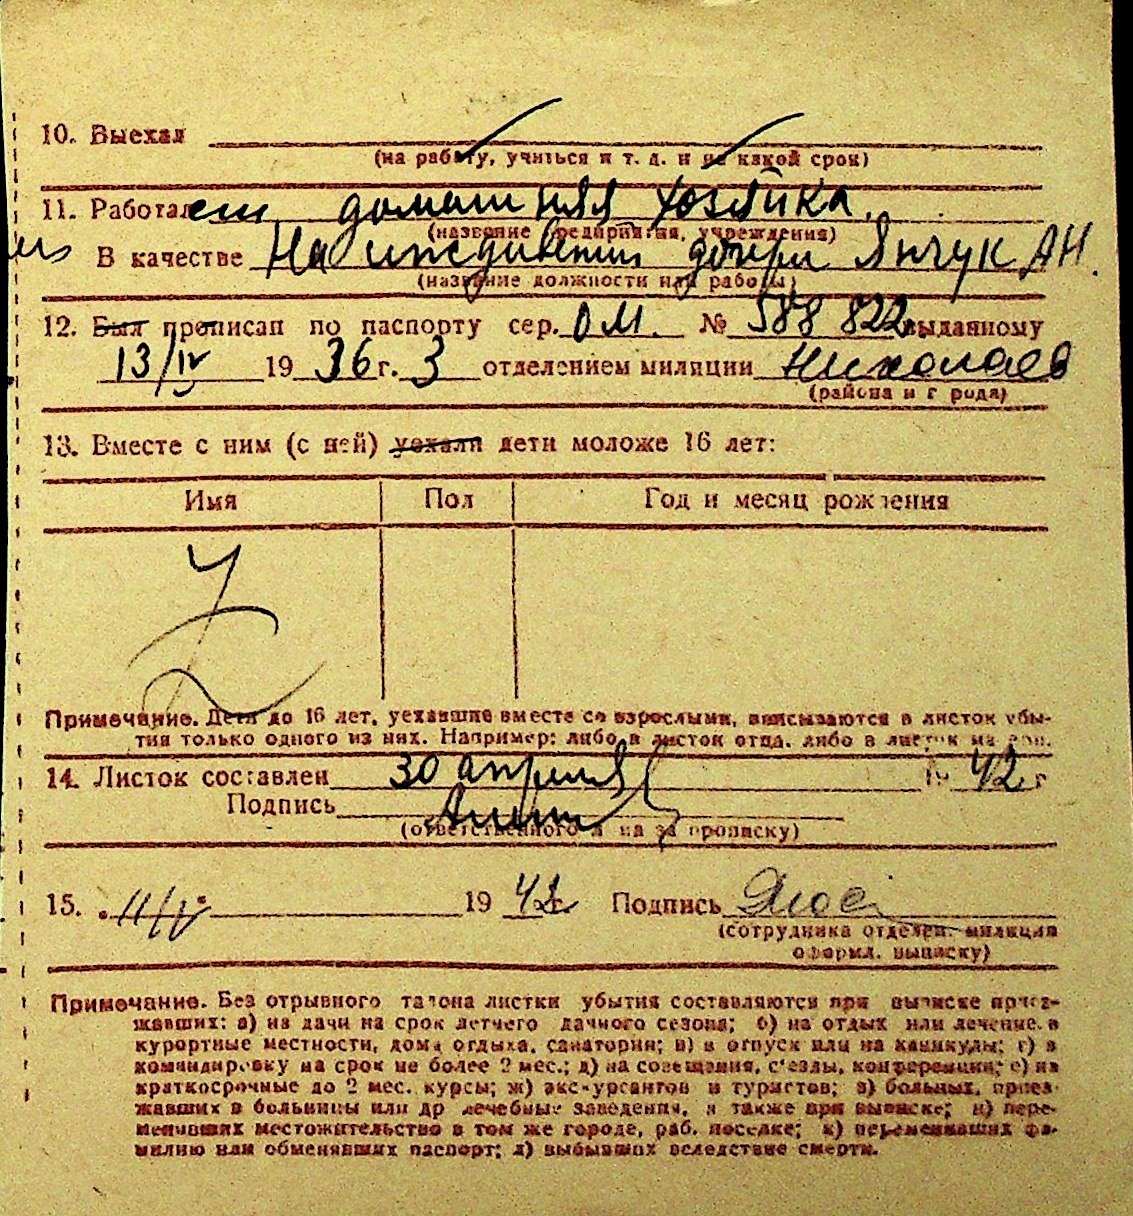 10. Выехал
(на работу, учиться и т. д. и на какой срок)
11. Работал домашняя хозяйка
(название предприятия, учреждения)
В качестве На иждивении дочери Янчук АН.
(название должности или работы)
12. Был прописан по паспорту сер. ОМ. № 588 822 выданному
13/IV 1936 г. 3 отделением милиции Николаев
(района и г рода)
13. Вместе с ним (с ней) уехали дети моложе 16 лет:
Имя Пол Год и месяц рождения
Примечание. Дети до 16 лет, уехавшие вместе со взрослыми, вписываются в листок убы-
тия только одного из них. Например: либо в листок отца, либо в листок матери.
14. Листок составлен 30 апреля 1942 г
Подпись
(ответственного л на за прописку)
15. 11/V 1942 г. Подпись
(сотрудника отделен. милиции
оформл. выписку)
Примечание. Без отрывного талона листки убытия составляются при выписке приез-
жавших: а) из дачи на срок летнего дачного сезона; б) на отдых или лечение в
курортные местности, дома отдыха, санатории; в) в отпуск или на каникулы; г) в
командировку на срок не более 2 мес.; д) на совещания, с'езды, конференции; е) на
краткосрочные до 2 мес. курсы; ж) экскурсантов и туристов; з) больных, приез-
жавших в больницы или др лечебные заведения, а также при выписке; и) пере-
менивших местожительство в том же городе, раб. поселке; к) переменивших фа-
милию или обменявших паспорт; л) выбывших вследствие смерти.